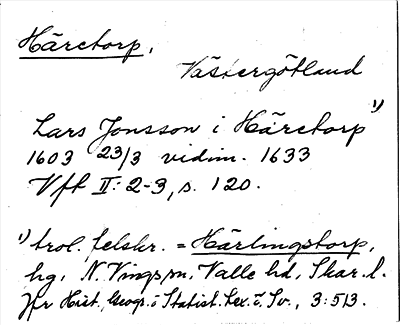 Häretorp,
Västergötland
Lars Jonsson i Häretorp 1)
1603 23/3 vidim. 1633
Vft II: 2-3, s. 120.
1) trol. felskr. = Härlingstorp,
hg, N. Vings sn, Valle hd, Skar. l.
Jfr Hist., Geogr. o Statist. Lex. ö. Sv., 3:513.